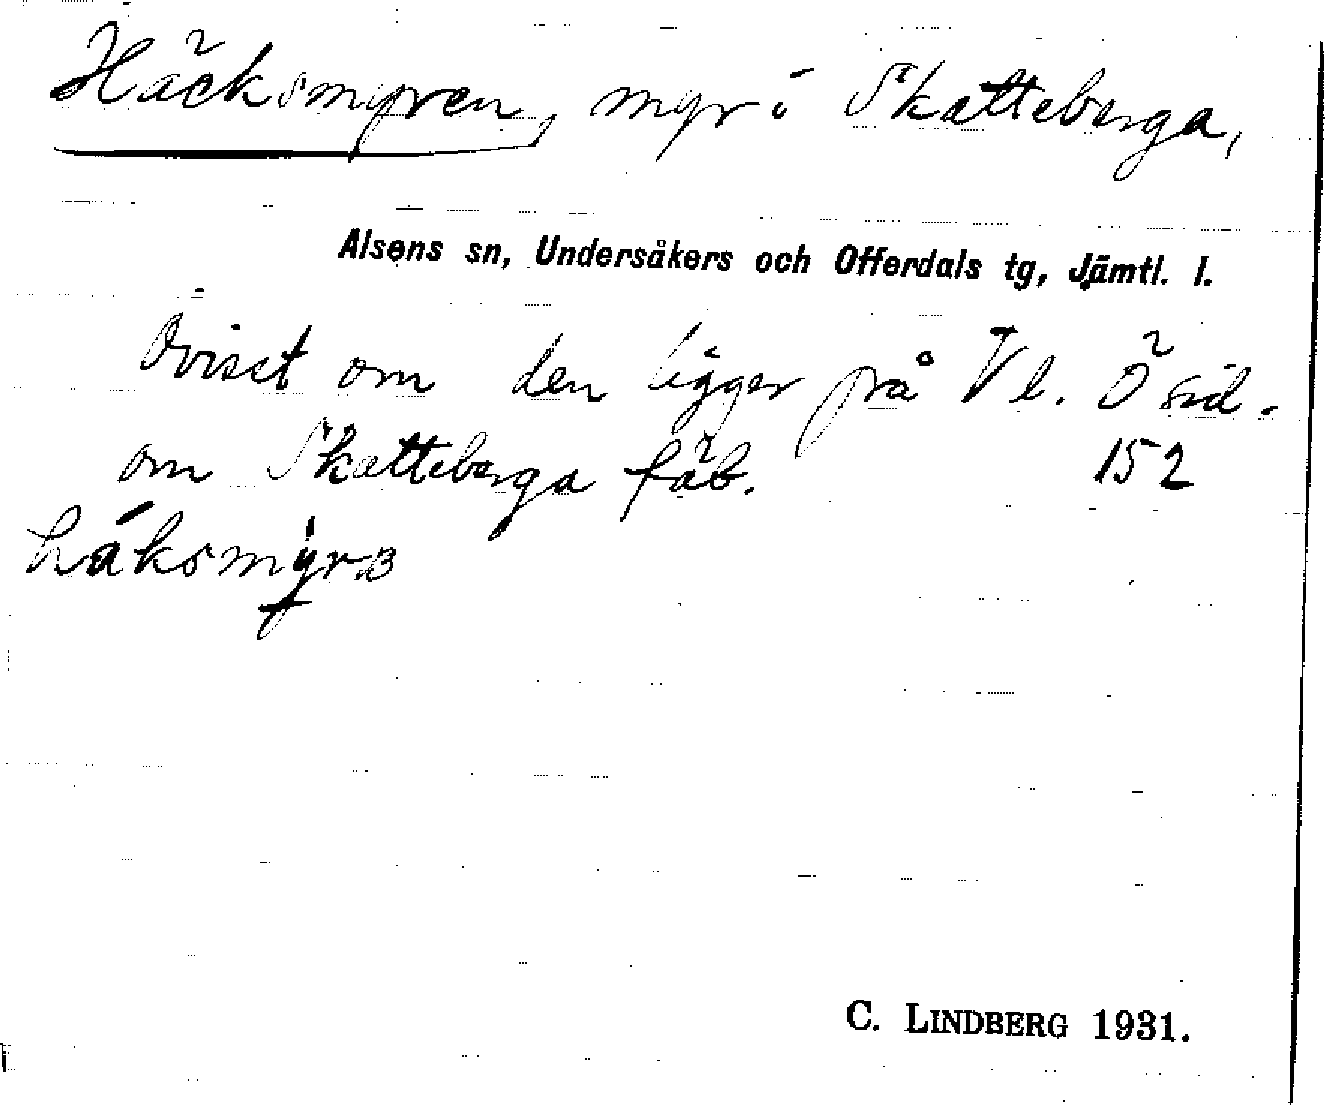 Häcksmyren, myr i Skatteberga,
Alsens sn, Undersåkers och Offerdals tg, Jämtl. l.
Ovisst om den ligger på Vl. Ö sid.
om Skatteberga fäb. 152
C. LINDBERG 1931.